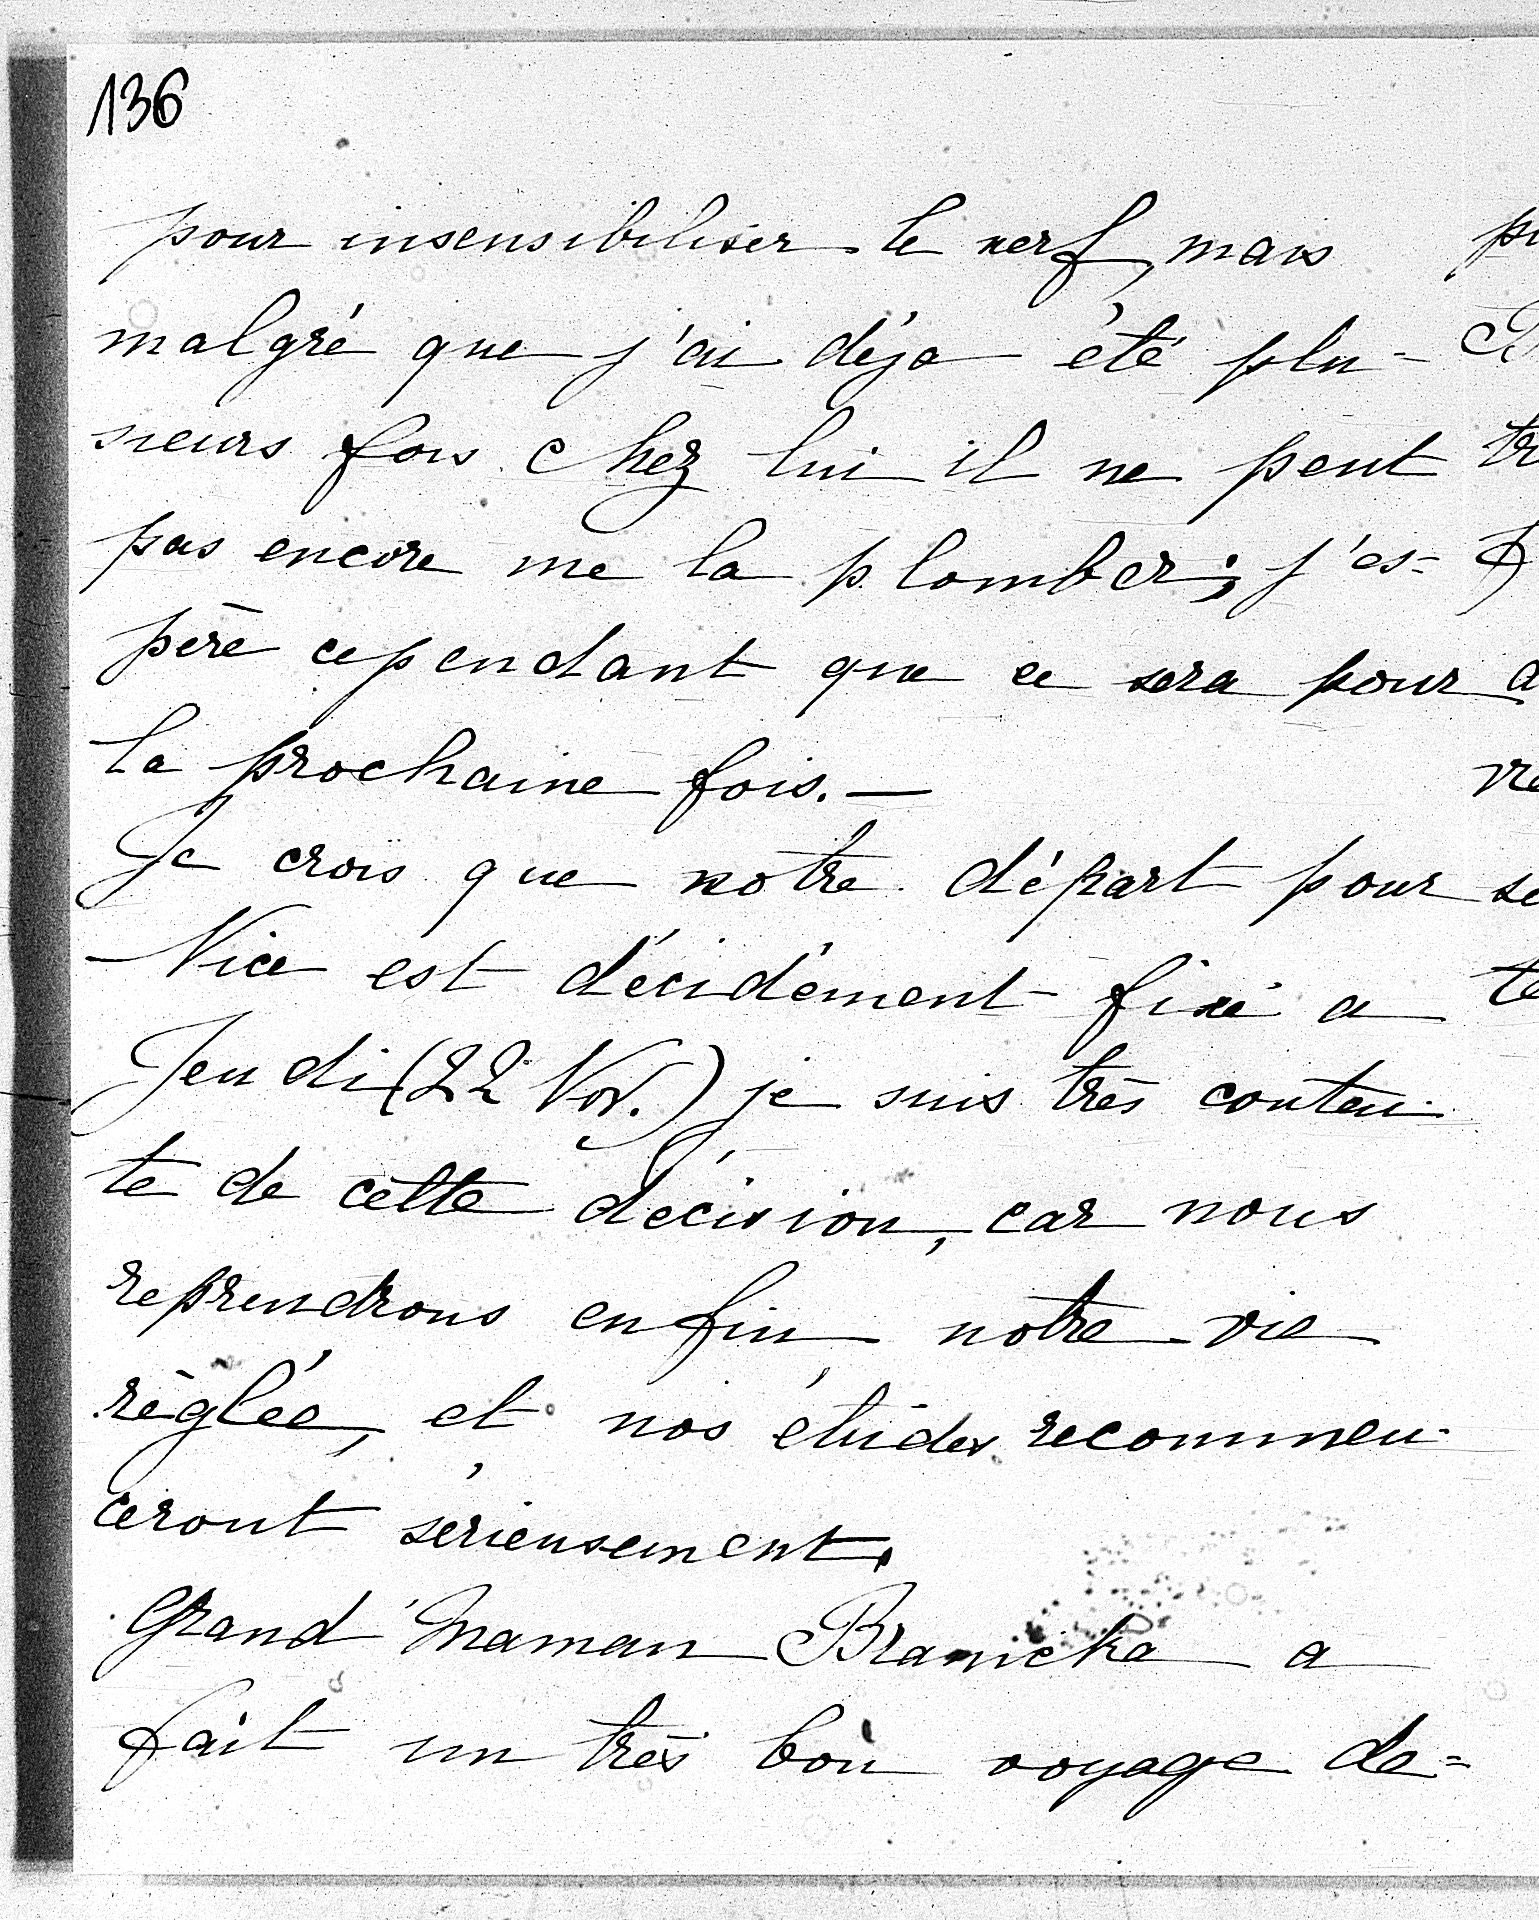 136
pour insensibiliser le nerf, mais
malgré que j'ai déja été plu-
sieurs fois chez lui il ne peut
pas encore me la plomber; j'es=
père cependant que ce sera pour
la prochaine fois. —
Je crois que notre départ pour
Nice est décidément fixé a
Jeudi (22 Nov.) je suis très conten-
te de cette décision, car nous
reprendrons enfin notre vie
réglée, et nos études recommen-
ceront sérieusement.
Grand'Maman Branicka a
fait un très bon voyage de=